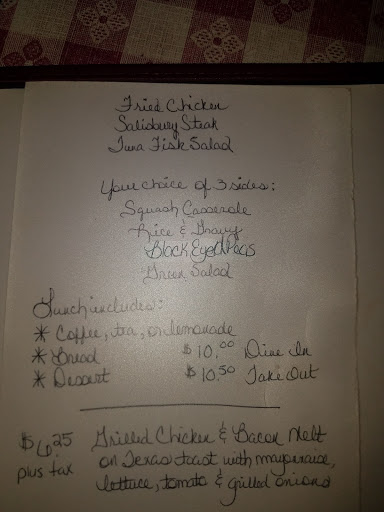 Fried Chicken
Salisbury Steak
Tuna Fish Salad
Your choice of 3 sides:
Squash Casserole
Rice & Gravy
Black Eyed Peas
Green Salad
Lunch includes:
* Coffee, tea, or lemonade
* Bread $10.00 Dine In
* Dessert $10.50 Take Out
$6.25 Grilled Chicken & Bacon Melt
plus tax on Texas toast with mayonaise,
lettuce, tomato & grilled onions